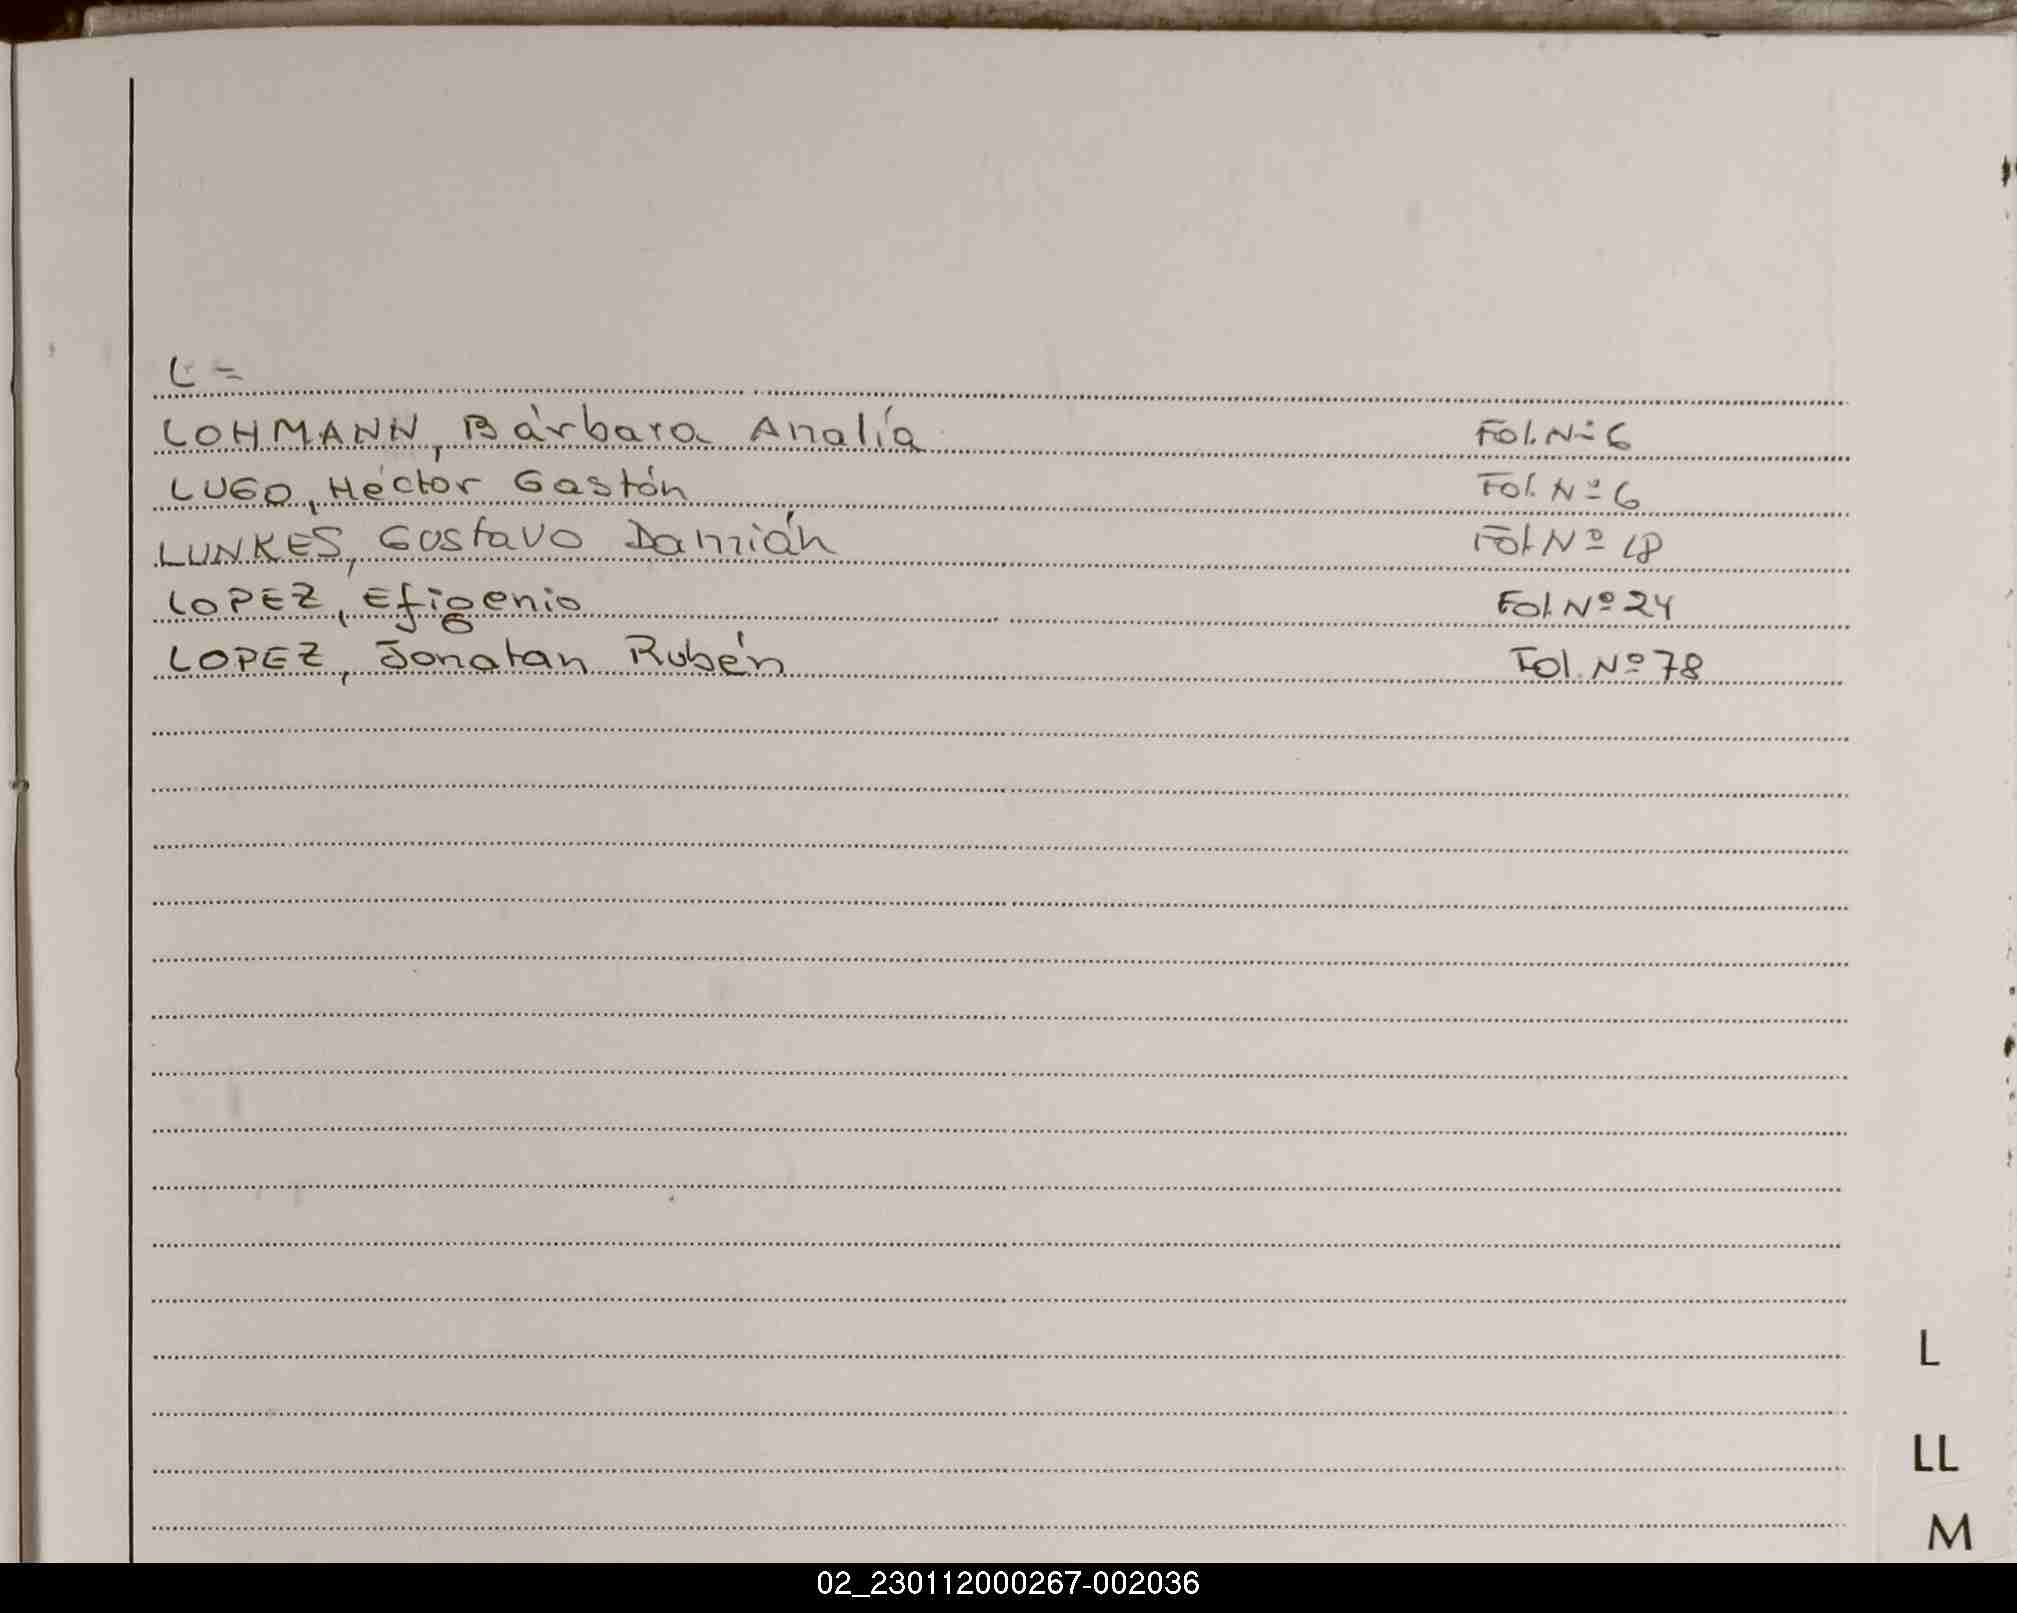 L =
LOHMANN, Bárbara Analía Fol. Nº 6
LUGO, Héctor Gastón Fol. Nº 6
LUNKES, Gustavo Damián Fol. Nº 18
LOPEZ, Efigenio Fol. Nº 24
LOPEZ, Jonatan Rubén Fol. Nº 78
L
LL
M
02_230112000267-002036